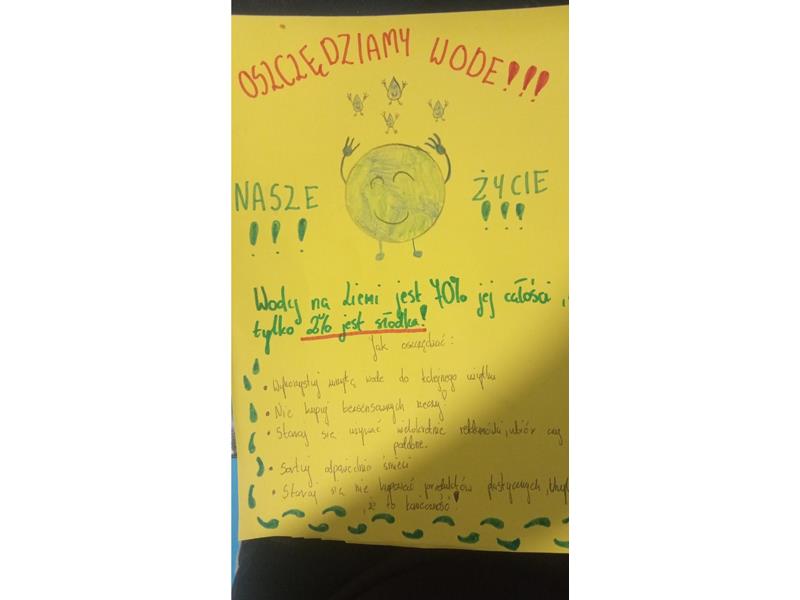 OSZCZĘDZIAMY WODE!!!
NASZE ŻYCIE
!!! !!!
Wody na ziemi jest 70% jej całości,
tylko 2% jest słodka!
Jak oszczędzać:
• Wykorzystuj wodę do kolejnego użytku
• Nie kupuj bezsensownych rzeczy!
• Staraj się używać wielokrotnie reklamówki, ubiór czy
podobne.
• Sortuj odpowiednio śmieci
• Staraj się nie kupować produktów plastycznych,
, że to konieczność!